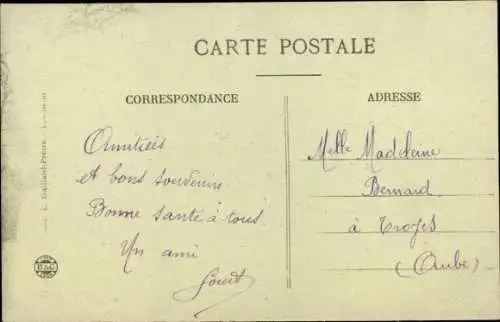 CARTE POSTALE
CORRESPONDANCE
ADRESSE
Amitiés
et bons souvenirs
Bonne santé à tous
Un ami
Melle Madeleine
Bernard
à Troyes
(Aube)
B&G